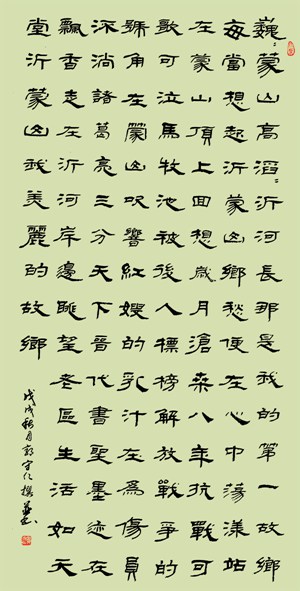 巍〻蒙山高滔〻沂河長那是我的第一故鄉
每當想起沂蒙山鄉愁便在心中蕩漾站
在蒙山頂上回想歲月滄桑八年抗戰可
歌可泣馬牧池被後人標榜解放戰爭的
號角在蒙山吹響紅嫂的乳汁在為傷員
流淌諸葛亮三分天下晉代書聖墨迹在
飄香走在沂河岸邊眺望老區生活如天
堂沂蒙山我美麗的故鄉
戊戌秋月守仁撰並書